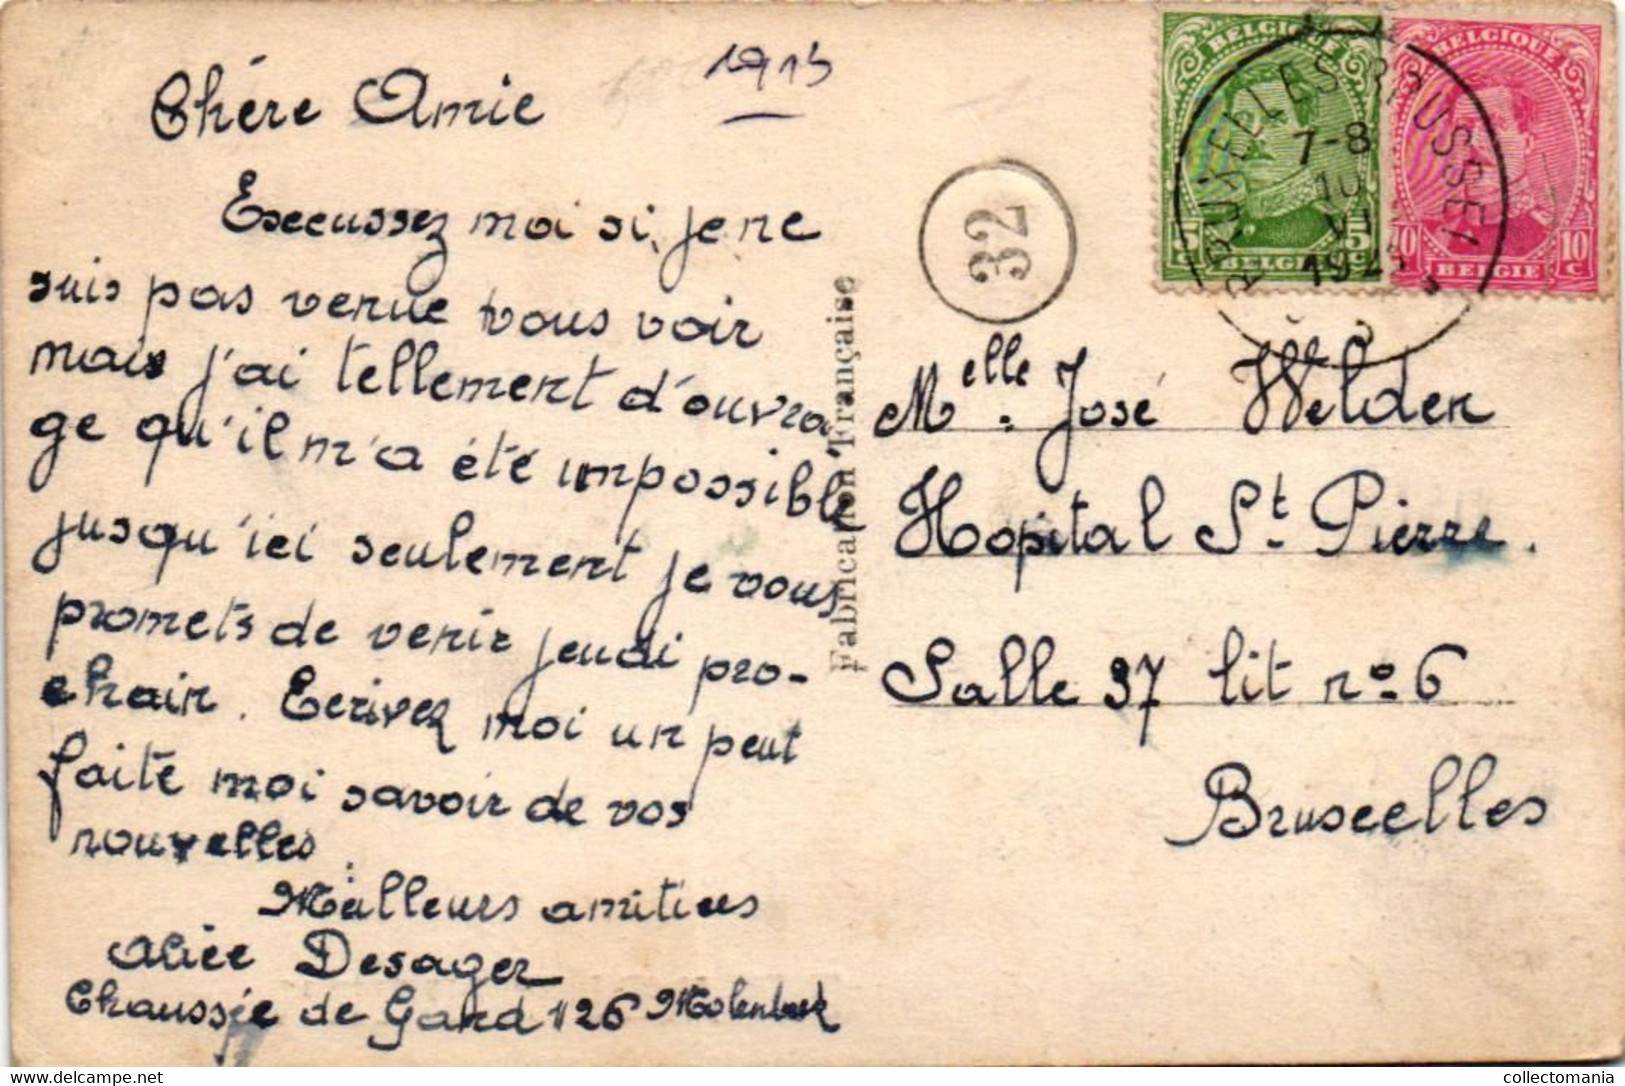 1915
Chére Amie
Excussez moi si, je ne
suis pas venue vous voir
mais j'ai tellement d'ouvra
ge qu'il m'a été impossible
jusqu'ici seulement je vous
promets de venir jeudi pro-
chair. Ecrivez moi un peut
faite moi savoir de vos
nouvelles.
Meilleurs amitiées
Alice Desager
Chaussée de Gand 126 Molenbeek
Fabrication Française
32
BELGIQUE
5c 5c
BELGIE
BELGIQUE
10c 10c
BELGIE
BRUXELLES BRUSSEL
7-8
10
VI
192
Melle. José Welden
Hopital St. Pierre.
Salle 37 lit no 6
Bruxelles
collectomania.com